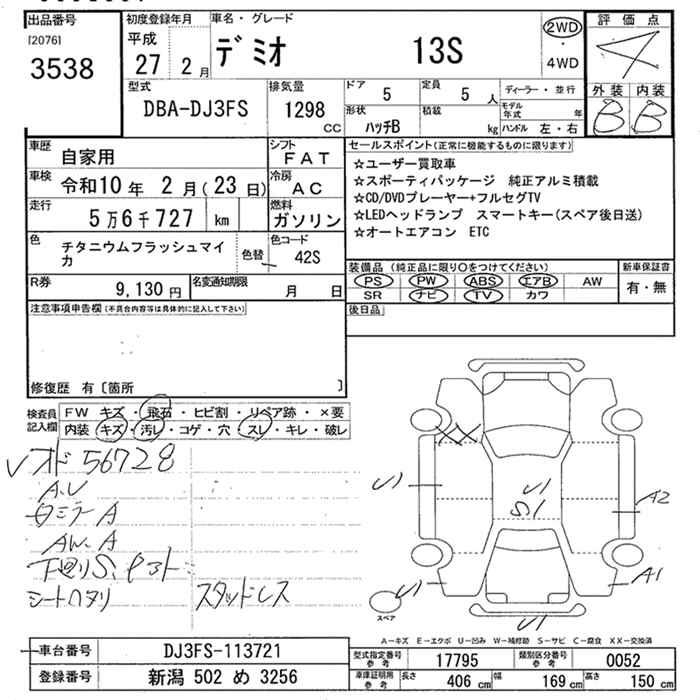 出品番号
[2076]
3538
初度登録年月
平成
27 2月
車名・グレード
デミオ 13S
2WD
・
4WD
評価点
4
外装 内装
B B
型式
DBA-DJ3FS
排気量
1298
CC
ドア
5
定員
5 人
形状
ハッチB
積載
kg
ディーラー・並行
モデル年式 年
ハンドル 左・右
車歴
自家用
シフト
FAT
車検
令和10年 2月(23日)
冷房
AC
走行
5万6千727 km
燃料
ガソリン
色
チタニウムフラッシュマイカ
色替
色コード
42S
R券
9,130円
名変通知期限
月 日
セールスポイント(正常に機能するものに限ります)
☆ユーザー買取車
☆スポーティパッケージ 純正アルミ積載
☆CD/DVDプレーヤー+フルセグTV
☆LEDヘッドランプ スマートキー(スペア後日送)
☆オートエアコン ETC
装備品(純正品に限り○をつけてください)
PS PW ABS エアB AW
SR ナビ TV カワ
新車保証書
有・無
後日品
注意事項申告欄(不具合内容等は具体的に記入して下さい)
修復歴 有〔箇所 〕
検査員記入欄
FW キズ・飛石・ヒビ割・リペア跡・×要
内装 キズ・汚レ・コゲ・穴・スレ・キレ・破レ
56728
A.U
ミラーA
AW.A
シートヘタリ
スタッドレス
U1
U1
S1
A2
U1
A1
U1
スペア
A-キズ E-エクボ U-凹み W-補修跡 S-サビ C-腐食 XX-交換済
車台番号
DJ3FS-113721
登録番号
新潟 502 め 3256
型式指定番号
参考
17795
類別区分番号
参考
0052
車庫証明用
参考
長さ 406 cm
幅 169 cm
高さ 150 cm